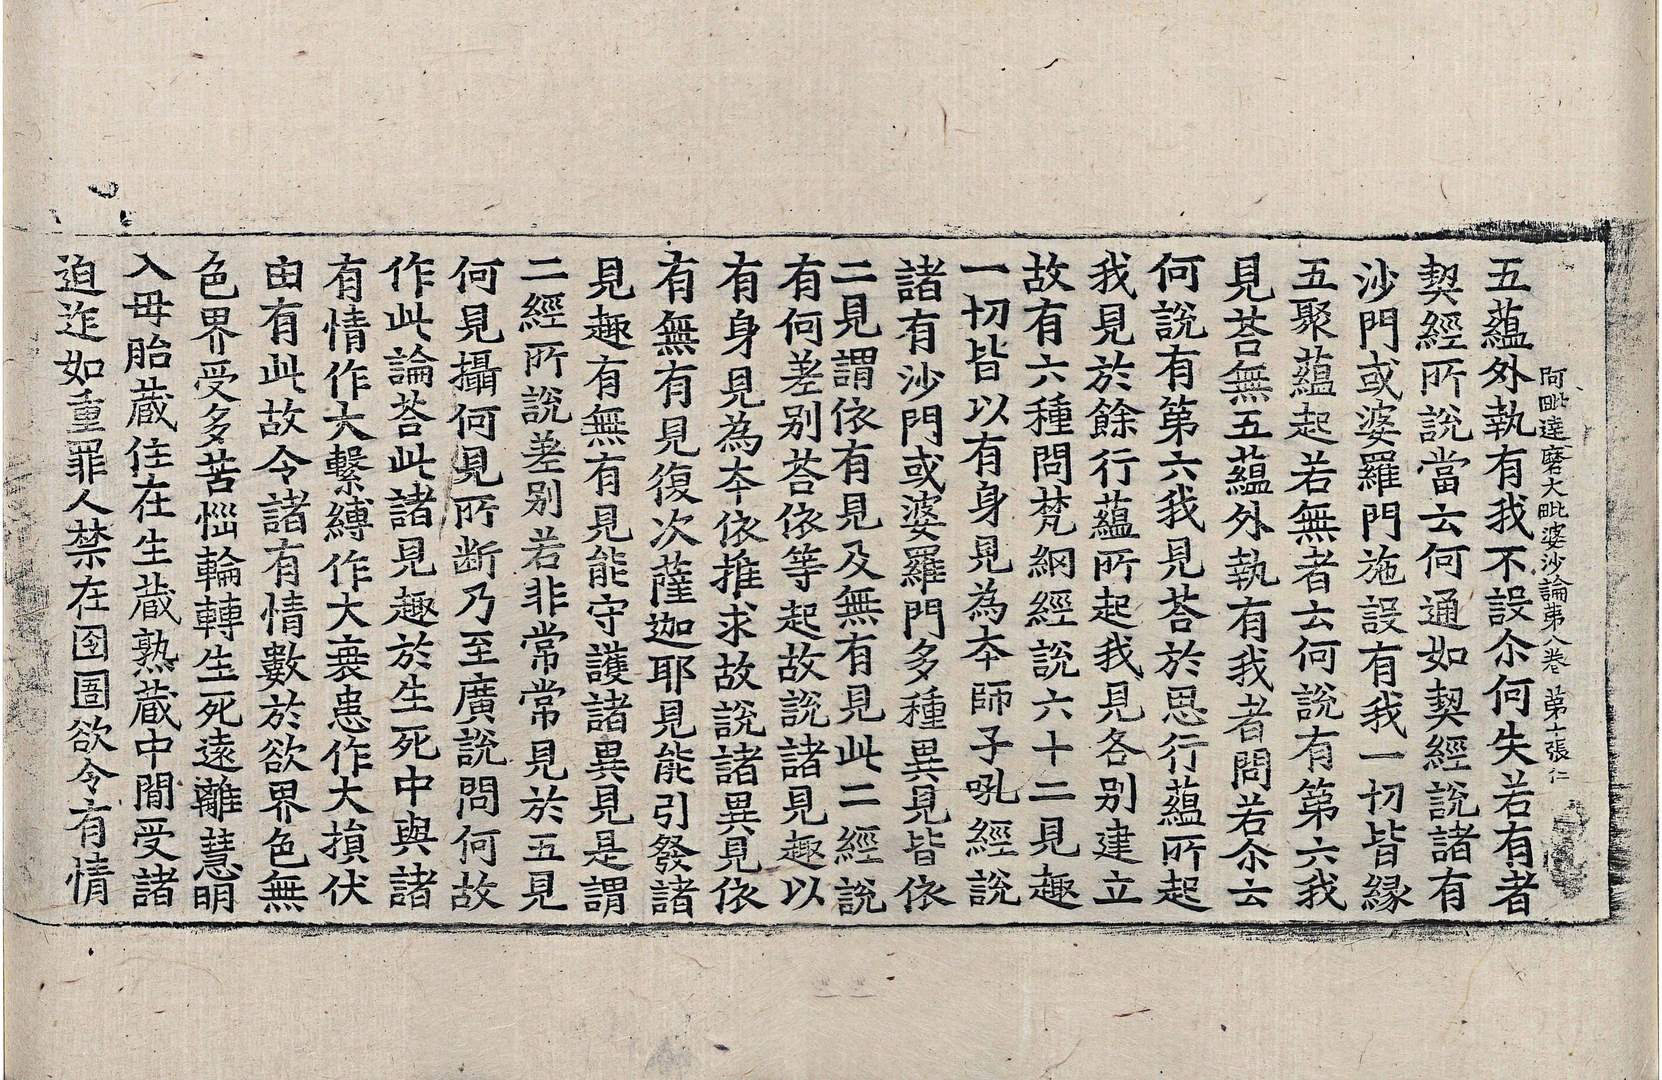 阿毗達磨大毗婆沙論第八卷 第十張 仁
五蘊外執有我不設尒何失若有者
契經所說當云何通如契經說諸有
沙門或婆羅門施設有我一切皆緣
五聚蘊起若無者云何說有第六我
見荅無五蘊外執有我者問若尒云
何說有第六我見荅於思行蘊所起
我見於餘行蘊所起我見各別建立
故有六種問梵網經說六十二見趣
一切皆以有身見為夲師子吼經說
諸有沙門或婆羅門多種異見皆依
二見謂依有見及無有見此二經說
有何差別荅依等起故說諸見趣以
有身見為夲依推求故說諸異見依
有無有見復次薩迦耶見能引發諸
見趣有無有見能守護諸異見是謂
二經所說差別若非常常見於五見
何見攝何見所断乃至廣說問何故
作此論荅此諸見趣於生死中與諸
有情作大繫縛作大衰患作大損伏
由有此故令諸有情數於欲界色無
色界受多苦惱輪轉生死遠離慧明
入母胎藏住在生藏熟藏中閒受諸
迫迮如重罪人禁在囹圄欲令有情